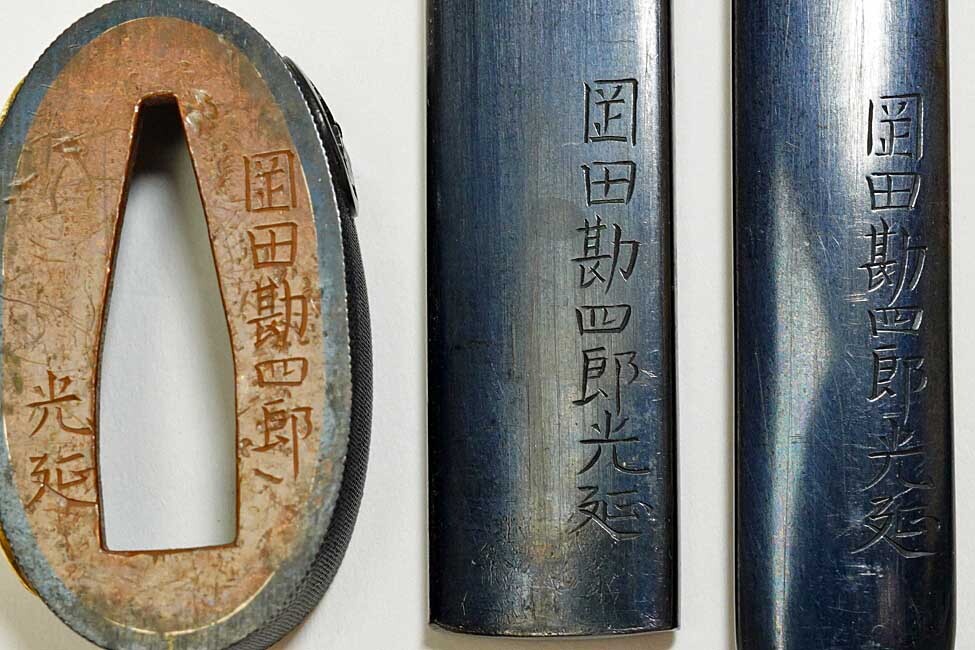 岡田勘四郎
光延
岡田勘四郎光延
岡田勘四郎光延